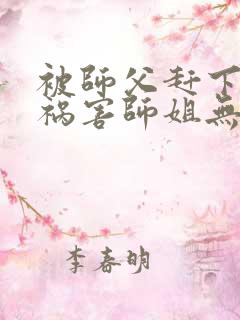 被師父赶下
祸害師姐無
李春明